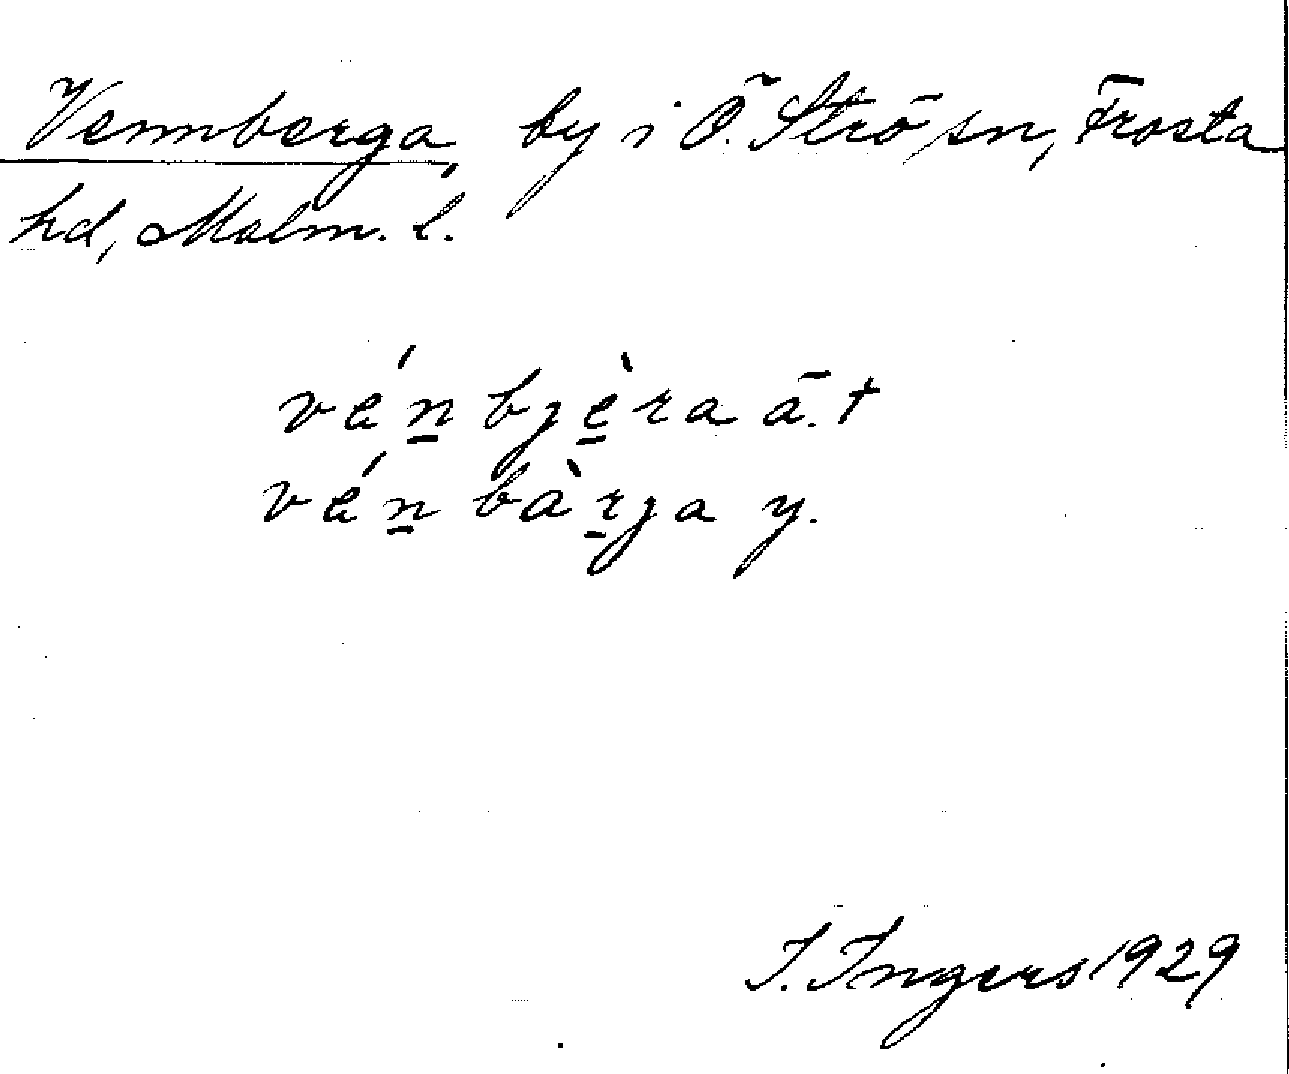 Vennberga, by i Ö. Strö sn, Frosta
hd, Malm. l.
vén̲bjè̲ra ä. †
vén̲bàr̲ja y.
I. Ingers 1929